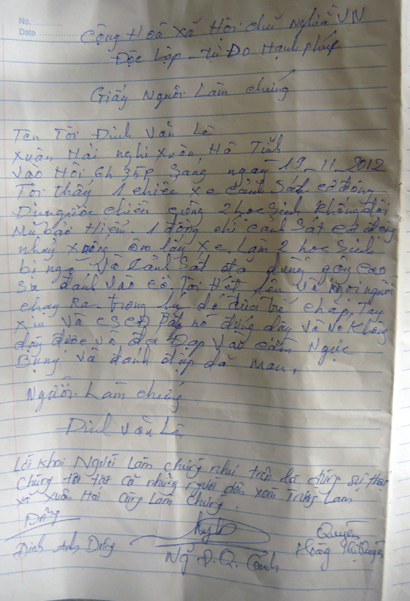 No.
Date
Cộng Hoà Xã Hội Chủ Nghĩa VN
Độc Lập - Tự Do Hạnh phúc
Giấy Người Làm chứng
Tên Tôi Đinh Văn Lê
Xuân Hải nghi Xuân, Hà Tĩnh
Vào Hồi 6h 35p Sáng ngày 19-11-2012
Tôi thấy 1 chiếc xe cảnh sát cơ động
Đi ngược chiều 2 học sinh không đội
Mũ bảo Hiểm 1 đồng chí cảnh sát cơ động
nhảy xuống ôm lấy xe làm 2 học sinh
bị ngã và cảnh sát đã dùng gậy cao
su đánh vào cổ, Tôi Hét lên và Mọi người
chạy Ra. trong lúc đó đứa bé chắp Tay
Xin và CSCĐ bắt nó đứng dậy và nó không
dậy được và đã Đạp vào Ngực
Bụng và đánh đập dã Man.
Người Làm chứng
Đinh Văn Lê
Lời khai Người Làm chứng như trên là đúng sự thật
Chúng tôi có những người dân xóm Trường Lam
xã Xuân Hải cùng làm chứng.
Đinh Anh Dũng Ng Đ.Q. Cảnh Quyên